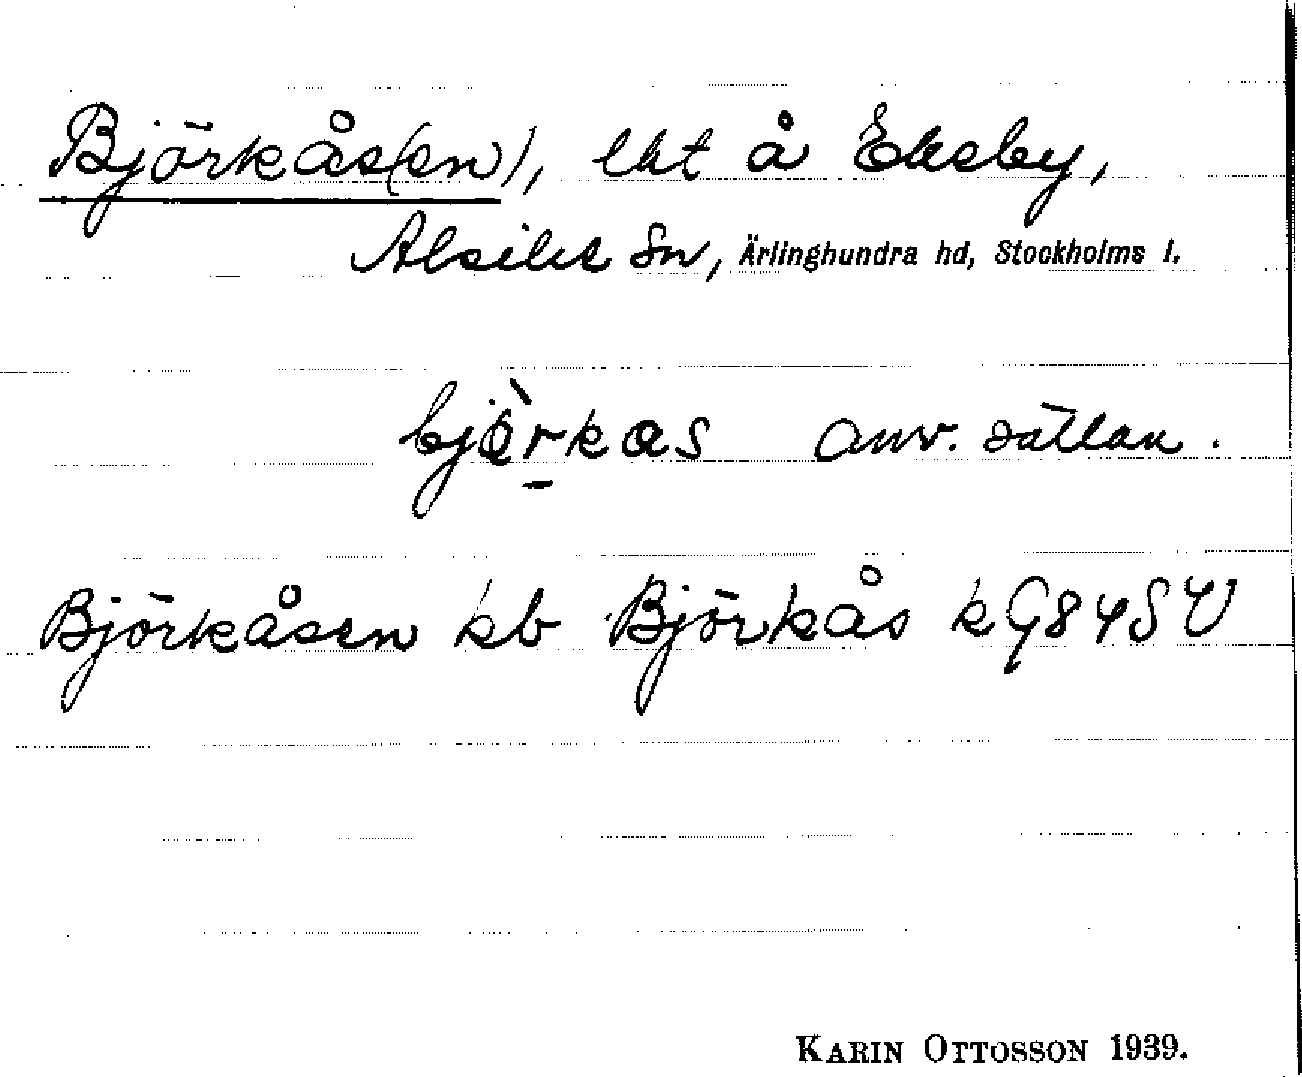 Björkås(en), lht å Ekeby,
Alsike sn, Ärlinghundra hd, Stockholms l.
bjö̀rkas anv. sällan.
Björkåsen kb Björkås k G84SV
KARIN OTTOSSON 1939.